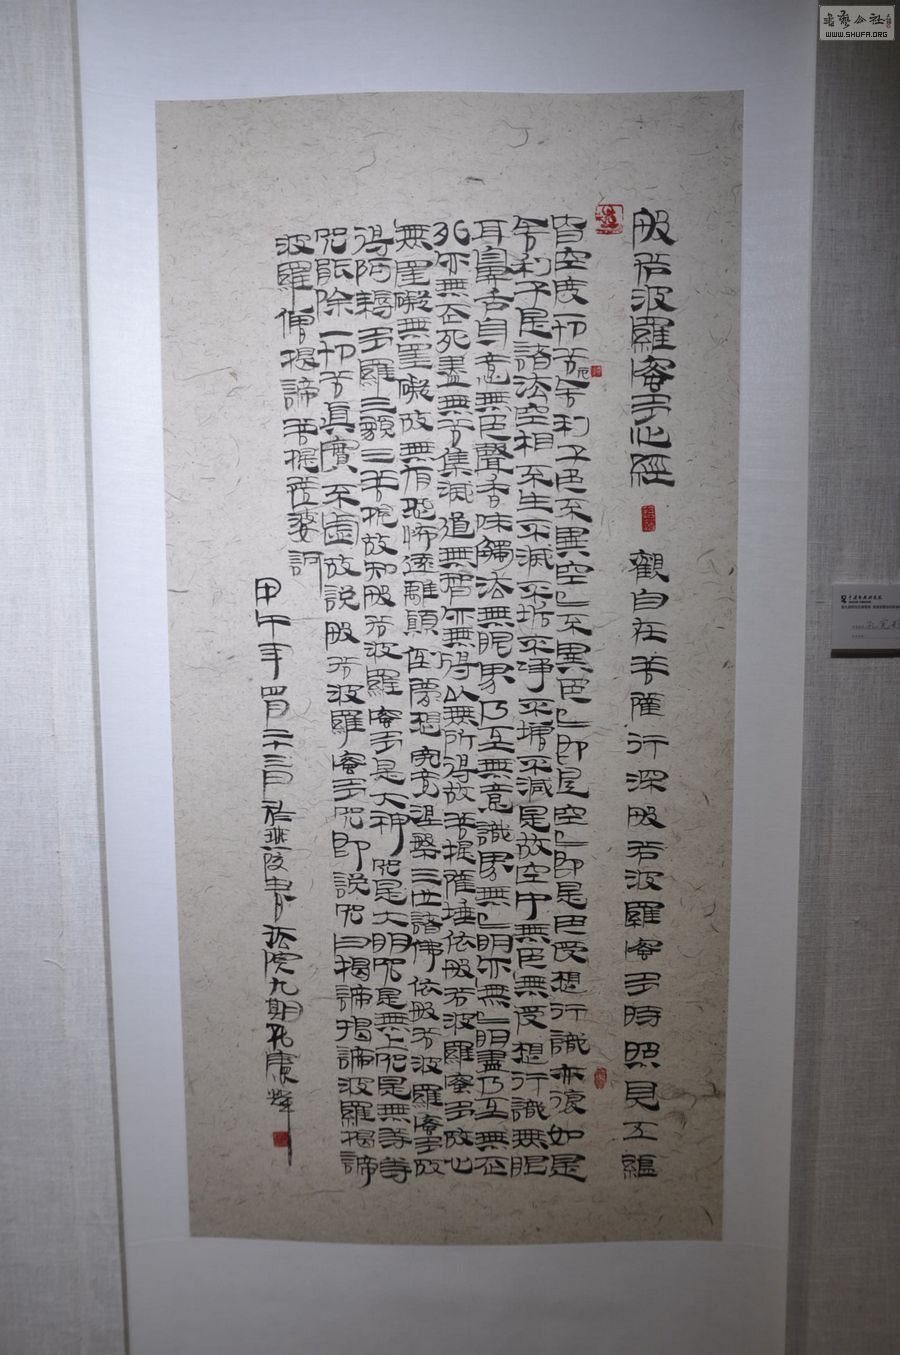 般若波羅蜜多心經 觀自在菩薩行深般若波羅蜜多時照見五蘊
皆空度一切苦厄舍利子色不異空空不異色色即是空空即是色受想行識亦復如是
舍利子是諸法空相不生不滅不垢不淨不增不減是故空中無色無受想行識無眼
耳鼻舌身意無色聲香味觸法無眼界乃至無意識界無無明亦無無明盡乃至無老
死亦無老死盡無苦集滅道無智亦無得以無所得故菩提薩埵依般若波羅蜜多故心
無罣礙無罣礙故無有恐怖遠離顛倒夢想究竟涅槃三世諸佛依般若波羅蜜多故
得阿耨多羅三藐三菩提故知般若波羅蜜多是大神咒是大明咒是無上咒是無等等
咒能除一切苦真實不虛故說般若波羅蜜多咒即說咒曰揭諦揭諦波羅揭諦
波羅僧揭諦菩提薩婆訶
甲午年四月二十三日於蘭陵書法院九期孔慶輝
WWW.SHUFA.ORG